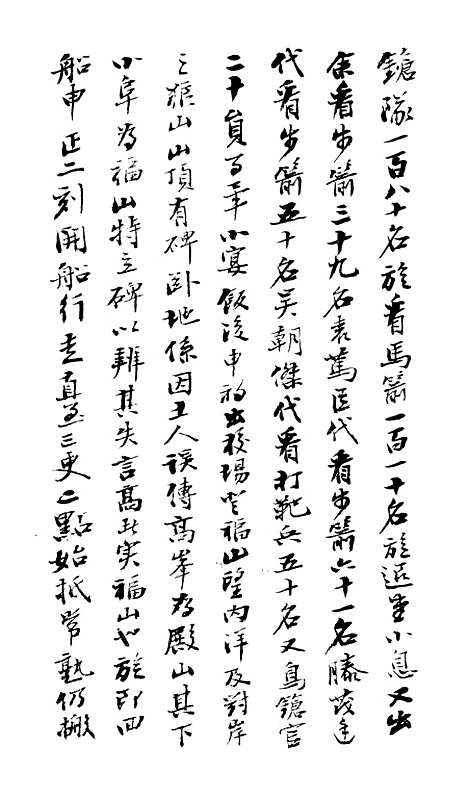 鎗隊一百八十名旋看馬箭一百一十名旋退堂小息又出
余看步箭三十九名袁篤臣代看步箭六十一名滕茂亭
代看步箭五十名吴朝傑代看打靶兵五十名又鳥鎗官
二十員与畢小宴飯後申初出校場登福山望内洋及對岸
之狼山山頂有碑卧地係因土人誤傳高峯為殿山其下
小阜為福山特立碑以辨其失言高此实福山也旋即回
船申正二刻開船行走直至三更二點始抵常熟仍搬